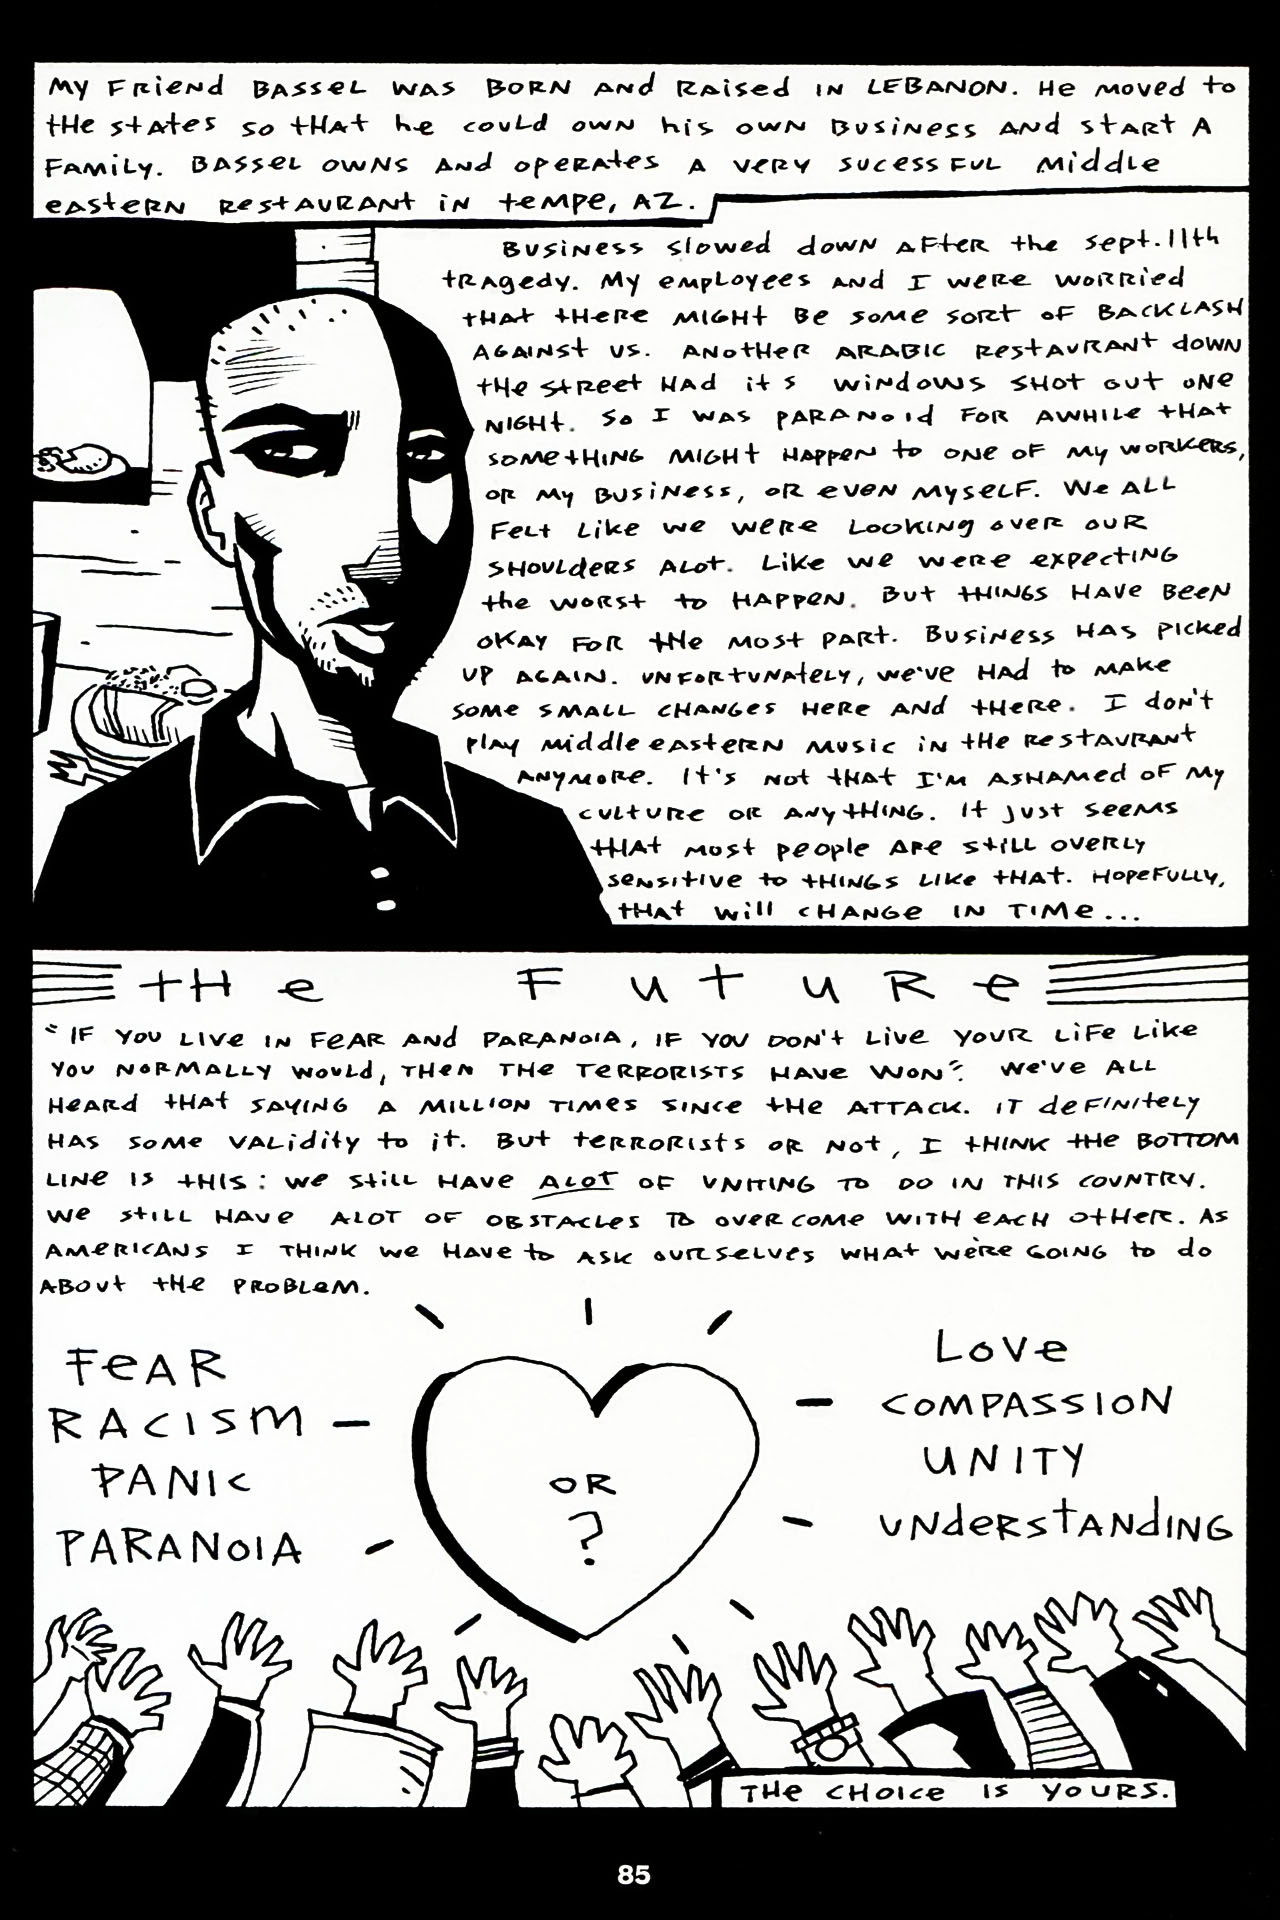 MY FRIEND BASSEL WAS BORN AND RAISED IN LEBANON. HE MOVED TO
THE STATES SO THAT HE COULD OWN HIS OWN BUSINESS AND START A
FAMILY. BASSEL OWNS AND OPERATES A VERY SUCESSFUL MIDDLE
EASTERN RESTAURANT IN TEMPE, AZ.
BUSINESS SLOWED DOWN AFTER THE SEPT. 11TH
TRAGEDY. MY EMPLOYEES AND I WERE WORRIED
THAT THERE MIGHT BE SOME SORT OF BACKLASH
AGAINST US. ANOTHER ARABIC RESTAURANT DOWN
THE STREET HAD IT'S WINDOWS SHOT OUT ONE
NIGHT. SO I WAS PARANOID FOR AWHILE THAT
SOMETHING MIGHT HAPPEN TO ONE OF MY WORKERS,
OR MY BUSINESS, OR EVEN MYSELF. WE ALL
FELT LIKE WE WERE LOOKING OVER OUR
SHOULDERS ALOT. LIKE WE WERE EXPECTING
THE WORST TO HAPPEN. BUT THINGS HAVE BEEN
OKAY FOR THE MOST PART. BUSINESS HAS PICKED
UP AGAIN. UNFORTUNATELY, WE'VE HAD TO MAKE
SOME SMALL CHANGES HERE AND THERE. I DON'T
PLAY MIDDLE EASTERN MUSIC IN THE RESTAURANT
ANYMORE. IT'S NOT THAT I'M ASHAMED OF MY
CULTURE OR ANYTHING. IT JUST SEEMS
THAT MOST PEOPLE ARE STILL OVERLY
SENSITIVE TO THINGS LIKE THAT. HOPEFULLY,
THAT WILL CHANGE IN TIME...
THE FUTURE
"IF YOU LIVE IN FEAR AND PARANOIA, IF YOU DON'T LIVE YOUR LIFE LIKE
YOU NORMALLY WOULD, THEN THE TERRORISTS HAVE WON". WE'VE ALL
HEARD THAT SAYING A MILLION TIMES SINCE THE ATTACK. IT DEFINITELY
HAS SOME VALIDITY TO IT. BUT TERRORISTS OR NOT, I THINK THE BOTTOM
LINE IS THIS: WE STILL HAVE ALOT OF UNITING TO DO IN THIS COUNTRY.
WE STILL HAVE ALOT OF OBSTACLES TO OVERCOME WITH EACH OTHER. AS
AMERICANS I THINK WE HAVE TO ASK OURSELVES WHAT WE'RE GOING TO DO
ABOUT THE PROBLEM.
FEAR
RACISM
PANIC
PARANOIA
OR
?
LOVE
COMPASSION
UNITY
UNDERSTANDING
THE CHOICE IS YOURS.
85